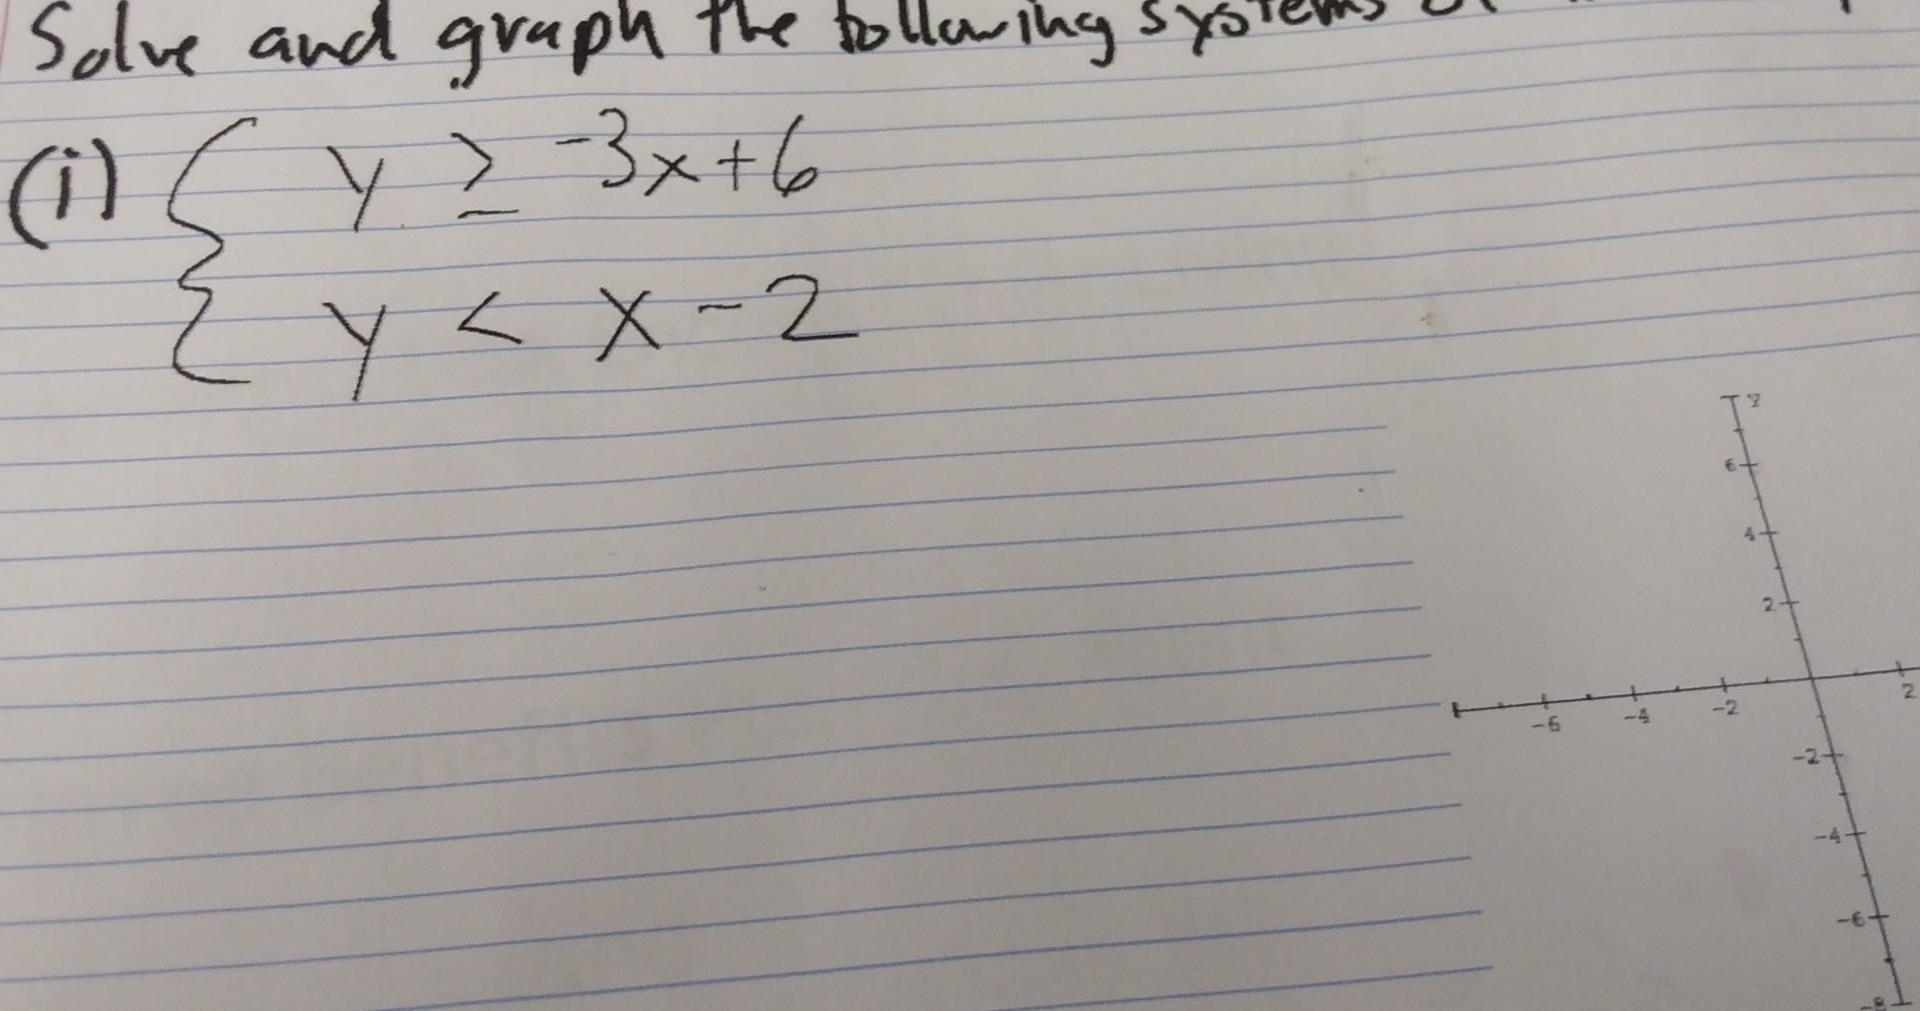 Solve and graph the following systems of
(i) { y ≥ -3x+6
y < x - 2
7
6
4
2
-6 -4 -2 2
-2
-4
-6
-8